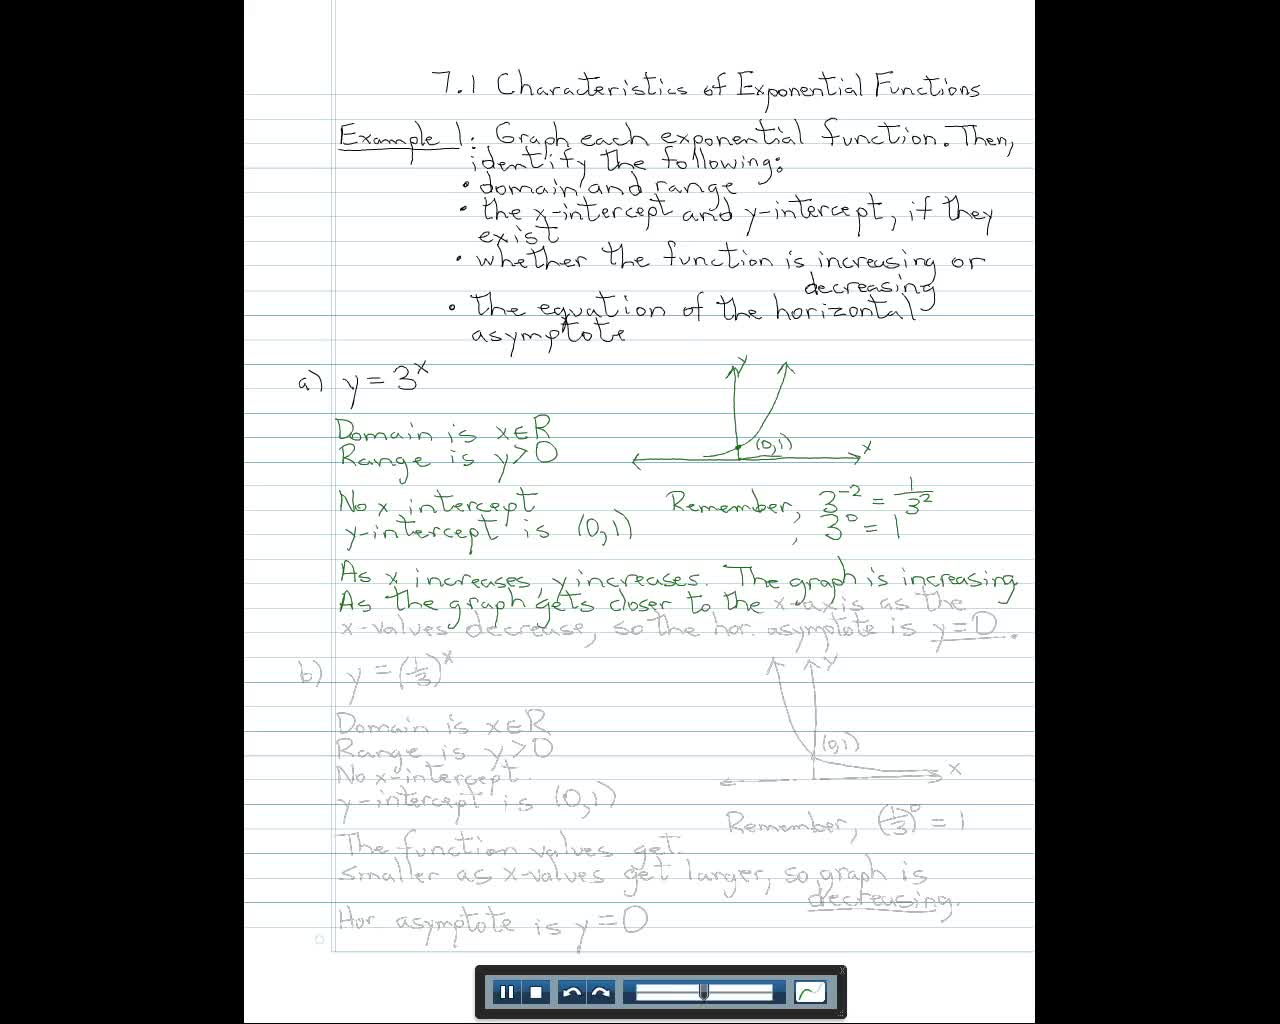 7.1 Characteristics of Exponential Functions
Example 1: Graph each exponential function. Then,
identify the following:
• domain and range
• the x-intercept and y-intercept, if they
exist
• whether the function is increasing or
decreasing
• the equation of the horizontal
asymptote
a) y = 3^x
y
(0,1)
x
Domain is x∈R
Range is y>0
No x intercept
y-intercept is (0,1)
Remember, 3^-2 = 1/3^2
, 3^0 = 1
As x increases, y increases. The graph is increasing.
As the graph gets closer to the x-axis as the
x-values decrease, so the hor. asymptote is y=0.
b) y = (1/3)^x
y
(0,1)
x
Domain is x∈R
Range is y>0
No x-intercept.
y-intercept is (0,1)
Remember, (1/3)^0 = 1
The function values get
smaller as x-values get larger, so graph is
decreasing.
Hor asymptote is y=0